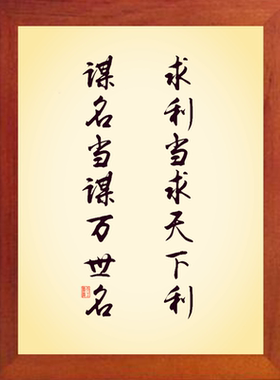 求利当求天下利
谋名当谋万世名